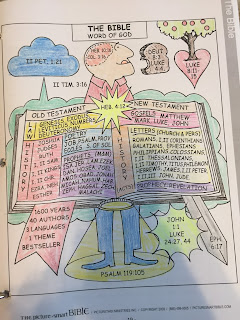 The Bible
THE BIBLE
WORD OF GOD
II PET. 1:21
HEB 10:16
COL. 3:16
DEUT
LUKE
4:4
LUKE
8:11-
15
II TIM. 3:16
HEB. 4:12
OLD TESTAMENT
LAW
GENESIS EXODUS
LEVITICUS NUMBERS
DEUTERONOMY
HISTORY
JOSHUA
JUDGES
RUTH
II SAM
I KING
II KING
I CHR
II CHR
EZRA, NEH
ESTHER
POETRY
JOB PSALM PROV
ECCLES. S. OF SOL
PROPHETS (MAJOR)
IS. JER LAM EZEK
DAN HOSEA JOEL
AMOS OBAD. JONAH
MICAH, NAHUM, HAB
ZEPH, HAGGAI, ZECH
MALACHI
NEW TESTAMENT
GOSPELS MATTHEW
MARK, LUKE, JOHN
HISTORY
(ACTS)
LETTERS (CHURCH & PERS)
ROMANS, I II CORINTHIANS
GALATIANS, EPHESIANS
PHILIPPIANS, COLOSSIANS
I II THESSALONIANS,
I II TIMOTHY, TITUS, PHILEMON
HEBREWS, JAMES, I II PETER,
I II III JOHN JUDE
PROPHECY REVELATION
1600 YEARS
40 AUTHORS
3 LANGUAGES
1 THEME
BESTSELLER
PSALM 119:105
JOHN
1:1
LUKE
24:27, 44
EPH.
6:17
THE picture-smart BIBLE